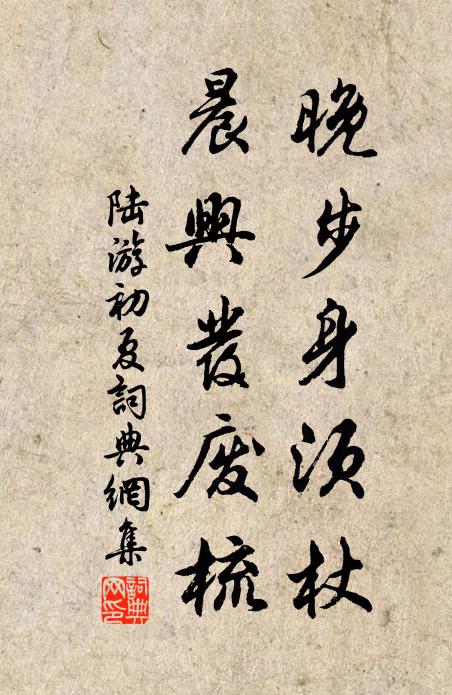 晚步身須杖
晨興發廢梳
陸游初夏詞典網集
詞典
网印